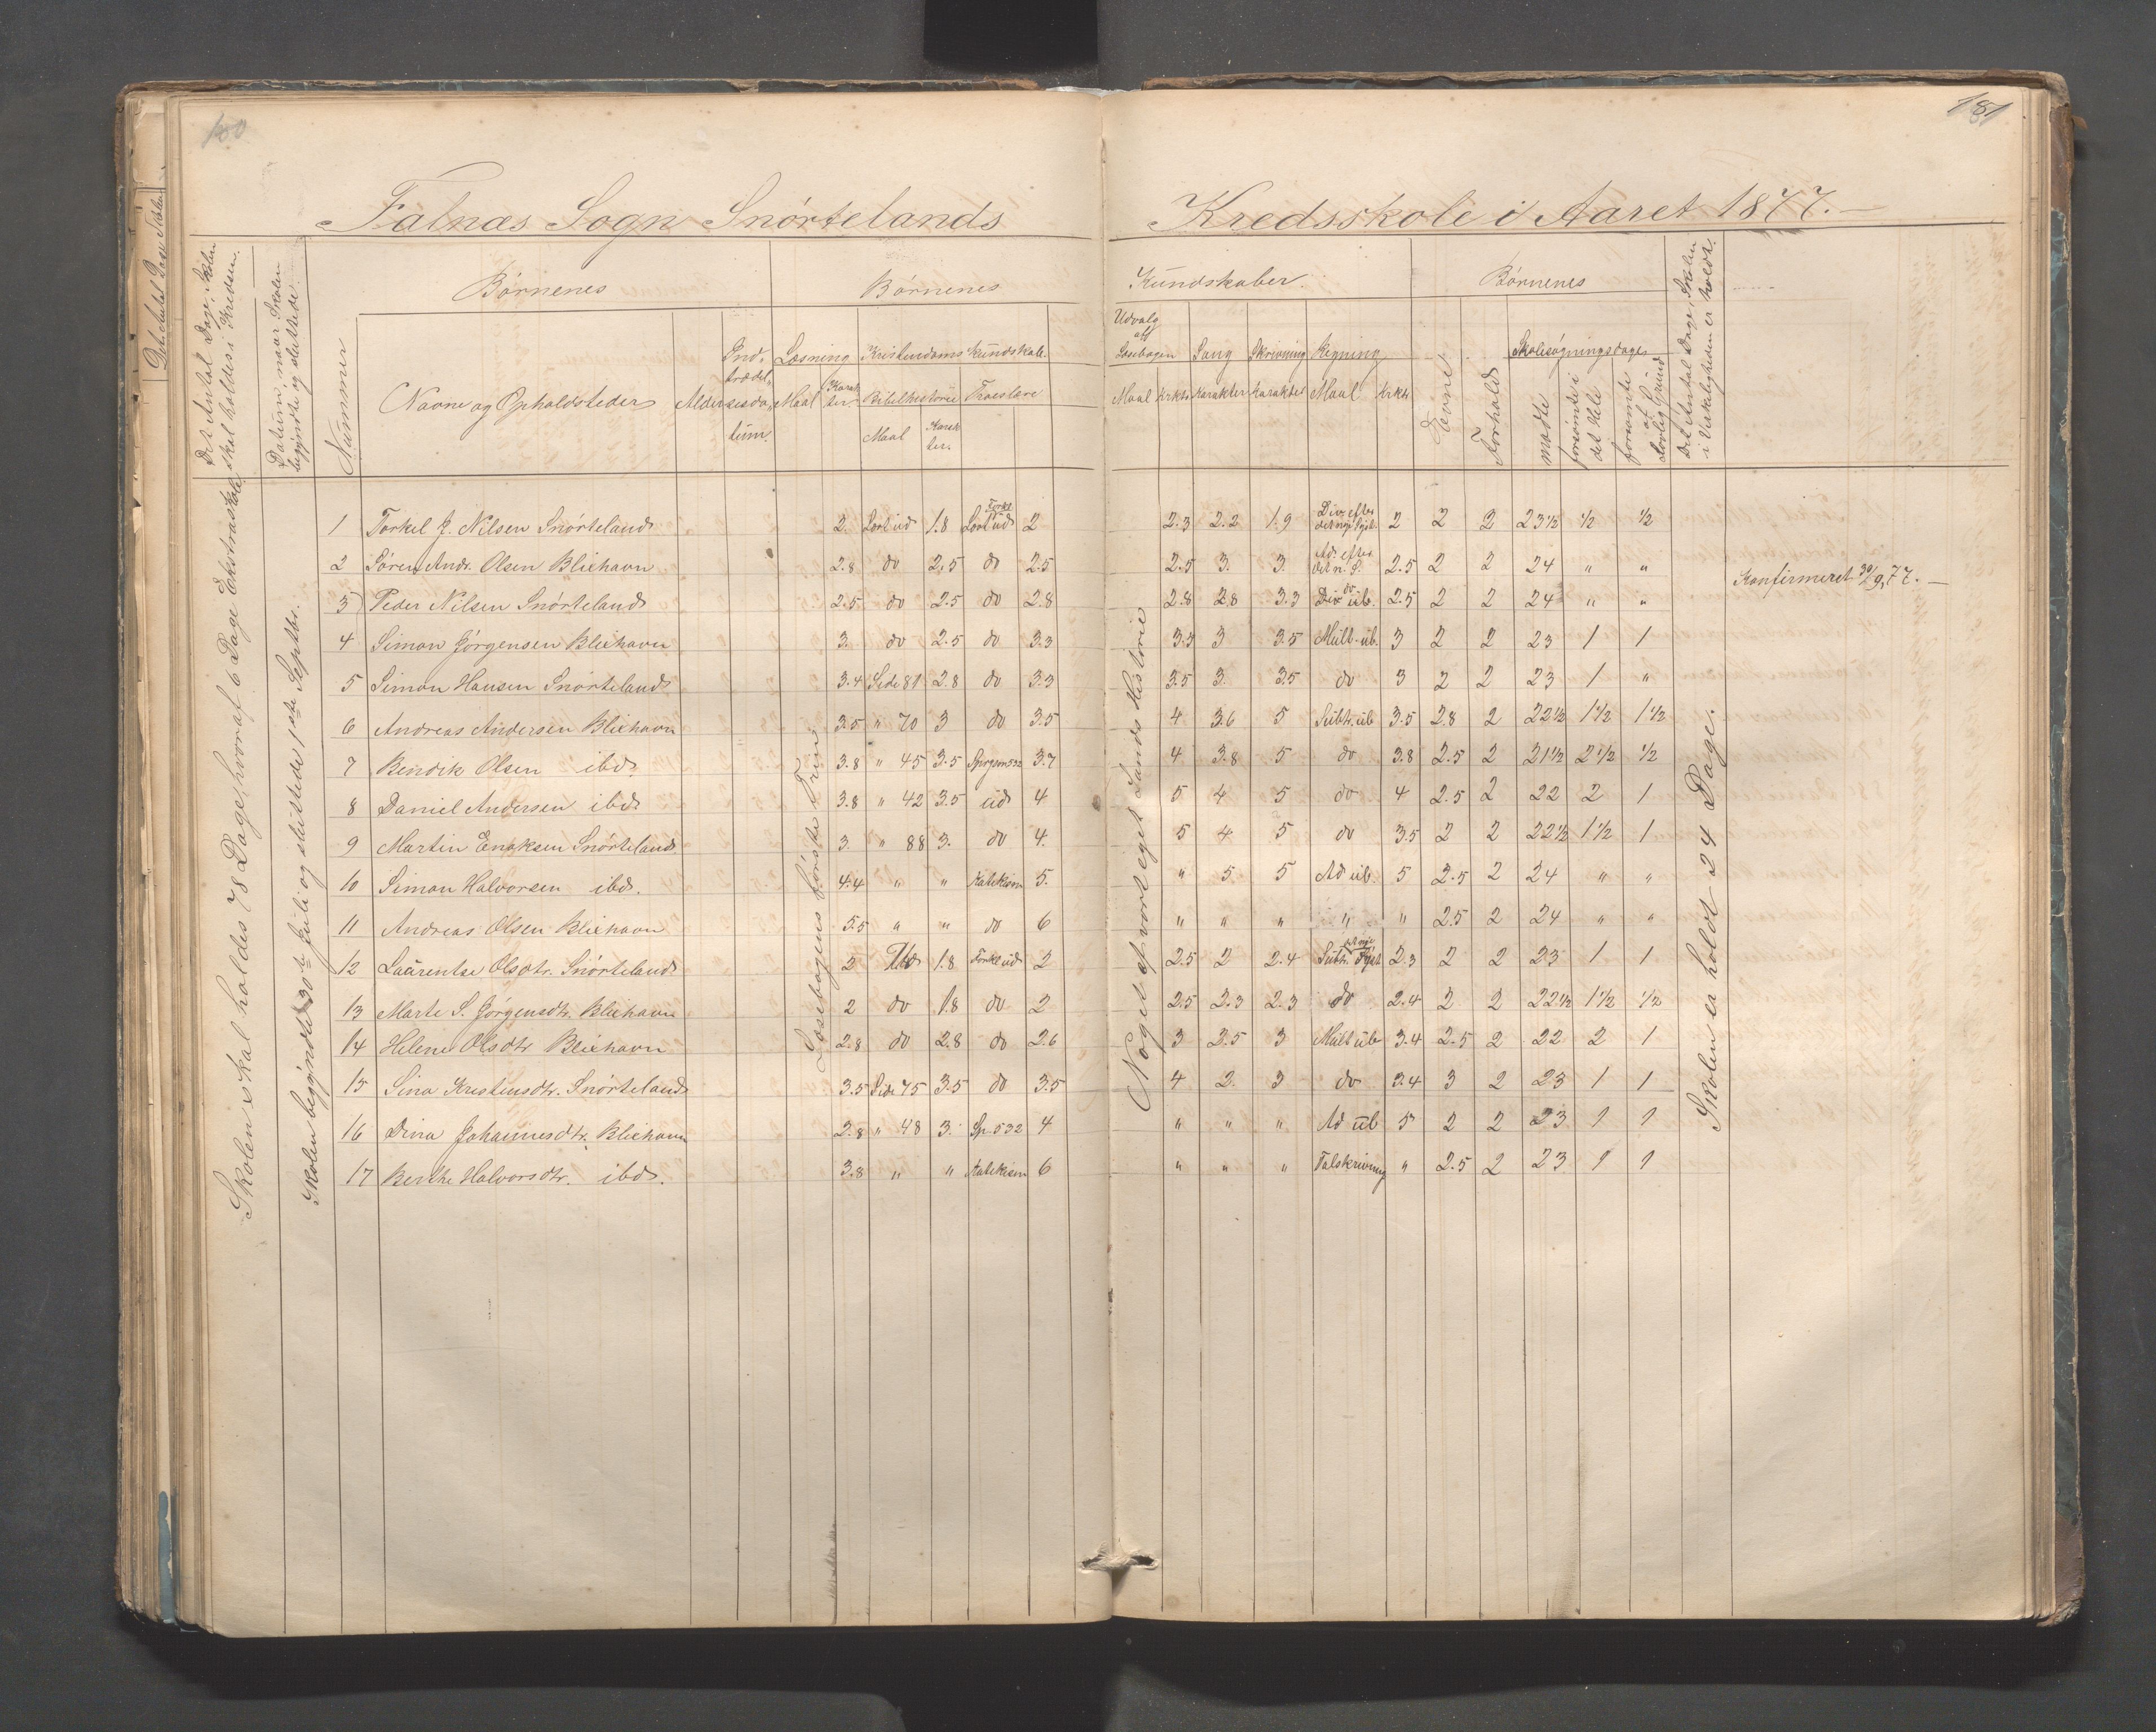 180
181
Falnæs Sogn Snørtelands
Kredsskole i Aaret 1877.
Det Antal Dage, Skolen skal holdes i Kredsen.
Datum, naar Skolen begyndte og sluttede.
Nummer
Børnenes
Navne og Opholdssteder
Alder
Indtrædelsesdatum.
Børnenes
Læsning
Maal
Karakter.
Kristendomskundskab.
Bibelhistorie
Maal
Karakter.
Troeslære
Kundskaber.
Udvalg af Læsebogen
Maal
Krktr.
Sang
Karakter
Skrivning
Karakter
Regning
Maal
Krktr.
Børnenes
Evne
Forhold
Skolesøgningsdage
mødte
forsømte i det Hele
forsømte af lovlig Grund
Det Antal Dage, Skolen i Virkeligheden er holdt.
Skolen skal holdes 78 Dage, hvoraf 6 Dage Ekstraskole
Skolen begyndte 30te Juli og sluttede 1ste Septbr.
Læsebogens første Trin
Noget af vort eget Lands Historie
Skolen er holdt 24 Dage.
1 Torkel J. Nilsen Snørteland 2. Lært ud 1.8 Lært Forkl. ud 2 2.3 2.2 1.9 Div. efter det nye Syst. 2 2 2 23½ ½ ½
2 Søren Andr. Olsen Bliehavn 2.8 do 2.5 do 2.5 2.5 3. 3. Ad. efter det n. S. 2.5 2 2 24 " "
3 Peder Nilsen Snørteland 2.5 do 2.5 do 2.8 2.8 2.8 3.3 Div do üb. 2.5 2 2 24 " " Konfirmeret 30/9, 77.
4 Simon Jørgensen Bliehavn 3. do 2.5 do 3.3 3.3 3 3.5 Mult. üb. 3 2 2 23 1 1
5 Simon Hansen Snørteland 3.4 Side 81 2.8 do 3.3 3.5 3. 3.5 do 3 2 2 23 1 "
6 Andreas Andersen Bliehavn 3.5 " 70 3 do 3.5 4 3.6 5 Subtr. üb 3.5 2.8 2 22½ 1½ 1½
7 Bendik Olsen ibd. 3.8 " 45 3.5 Spørgsm 532 3.7 4 3.8 5 do 3.8 2.5 2 21½ 2½ ½
8 Daniel Andersen ibd. 3.8 " 42 3.5 ud 4 5 4 5 do 4 2.5 2 22 2 1
9 Martin Enoksen Snørteland 3. " 88 3. do 4. 5 4 5 do 3.5 2 2 22½ 1½ 1
10 Simon Halvorsen ibd. 4.4 " " Katekism 5. " 5 5 Ad üb. 5 2.5 2 24 " "
11 Andreas Olsen Bliehavn 5.5 " " do 6 " " " " " 2.5 2 24 " "
12 Laurentse Olsdtr. Snørteland 2 Ud 1.8 Forkl ud 2 2.5 2 2.4 Subtr. nye Syst 2.3 2 2 23 1 1
13 Marte S. Jørgensdtr. Bliehavn 2 do 1.8 do 2 2.5 2.3 2.3 do 2.4 2 2 22½ 1½ ½
14 Helene Olsdtr Bliehavn 2.8 do 2.8 do 2.6 3 2.5 3 Mult üb 3.4 2.5 2 22 2 1
15 Sina Kristensdtr. Snørteland 3.5 Side 75 3.5 do 3.5 4 2. 3 do 3.4 3 2 23 1 1
16 Dina Johannesdtr. Bliehavn 2.8 " 48 3. Sp. 532 4 " " " Ad üb 5 2 2 23 1 1
17 Berthe Halvorsdtr. ibd. 3.8 " " Katekism 6 " " " Talskrivning " 2.5 2 23 1 1